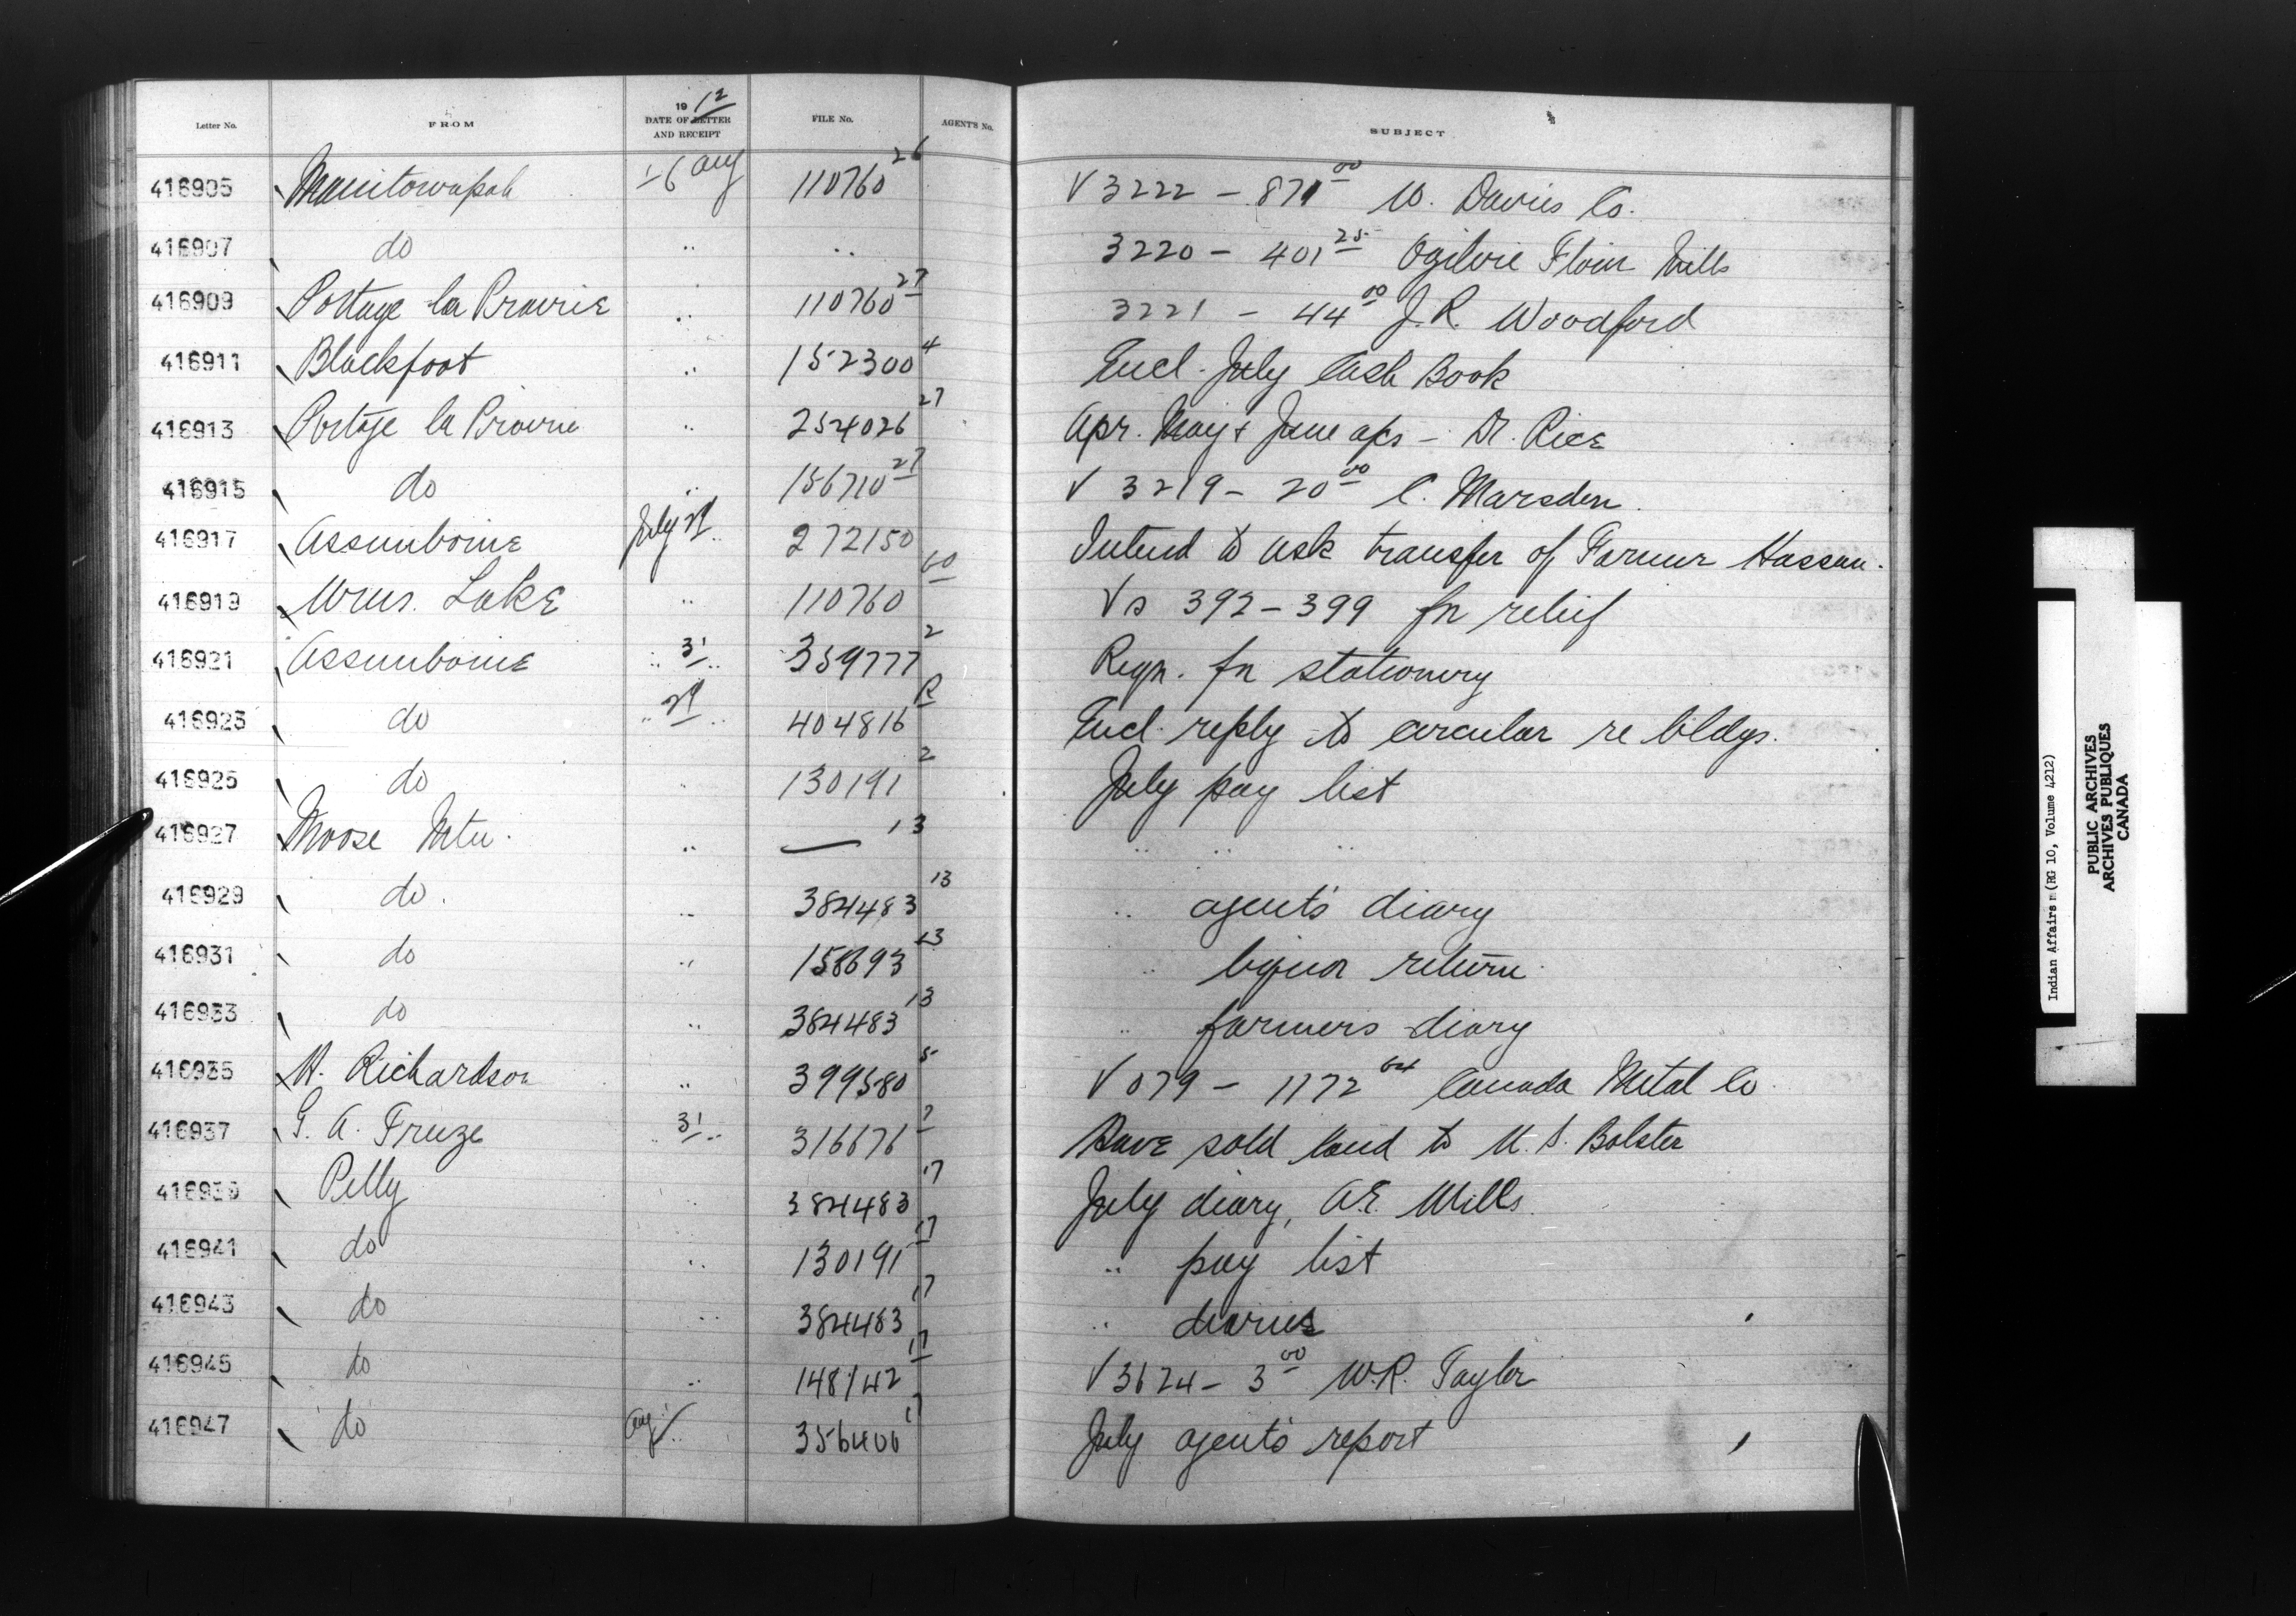 Letter No. FROM 19 12 DATE OF LETTER AND RECEIPT FILE No. AGENT'S No. SUBJECT
416905 Manitowapah 1-6 Aug 110760 26 V 3222 - 871 00 W. Davies Co.
416907 do " " 3220 - 401 25 Ogilvie Flour Mills
416909 Portage la Prairie " 110760 27 3221 - 44 00 J. R. Woodford
416911 Blackfoot " 152300 4 Encl. July Cash Book
416913 Portage la Prairie " 254026 27 Apr. May & June a/cs - Dr. Rice
416915 do " 156710 27 V 3219 - 20 00 C. Marsden
416917 Assiniboine July 29 272150 Intend to ask transfer of Farmer Hassan.
416919 Wms. Lake " 110760 60 Vs 392 - 399 fr relief
416921 Assiniboine " 31 " 359777 2 Reqn. fr stationery
416923 do " 29 " 404816 R Encl. reply to circular re bldgs.
416925 do " 130191 2 July pay list
416927 Moose Mtn. " — 13 " " "
416929 do. " 384483 13 " agent's diary
416931 do " 158693 13 " liquor return
416933 do " 384483 13 " farmers diary
416935 H. Richardson " 399580 5 V 079 - 1172 64 Canada Metal Co
416937 G. A. " 31 " 316676 2 Have sold land to M. S. Bolster
416939 Pelly " 384483 17 July diary, A.E. Mills.
416941 do " 130191 17 " pay list
416943 do " 384483 17 " diaries
416945 do " 148142 17 V 3624 - 3 00 W.R. Taylor
416947 do Aug 1 " 356406 17 July agent's report
Indian Affairs (RG 10, Volume 4212)
PUBLIC ARCHIVES
ARCHIVES PUBLIQUES
CANADA